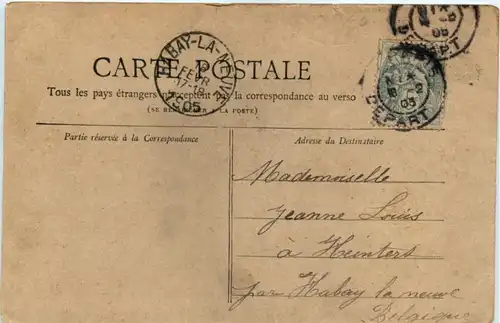 HABAY-LA-NEUVE
FEVR
17-18
05
DEPART
05
DEPART
CARTE POSTALE
Tous les pays étrangers n'acceptent pas la correspondance au verso
(SE RENSEIGNER À LA POSTE)
Partie réservée à la Correspondance
Adresse du Destinataire
Mademoiselle
Jeanne Louis
à Heinters
par Habay la neuve
Belgique